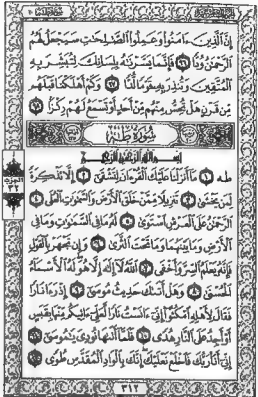 إِنَّ الَّذِينَ ءَامَنُوا وَعَمِلُوا الصَّٰلِحَٰتِ سَيَجْعَلُ لَهُمُ
الرَّحْمَٰنُ وُدًّا ٩٦ فَإِنَّمَا يَسَّرْنَٰهُ بِلِسَانِكَ لِتُبَشِّرَ بِهِ
الْمُتَّقِينَ وَتُنذِرَ بِهِ قَوْمًا لُّدًّا ٩٧ وَكَمْ أَهْلَكْنَا قَبْلَهُم
مِّن قَرْنٍ هَلْ تُحِسُّ مِنْهُم مِّنْ أَحَدٍ أَوْ تَسْمَعُ لَهُمْ رِكْزًا ٩٨
سُورَةُ طه
بِسْمِ اللَّهِ الرَّحْمَٰنِ الرَّحِيمِ
طه ١ مَا أَنزَلْنَا عَلَيْكَ الْقُرْءَانَ لِتَشْقَىٰ ٢ إِلَّا تَذْكِرَةً
لِّمَن يَخْشَىٰ ٣ تَنزِيلًا مِّمَّنْ خَلَقَ الْأَرْضَ وَالسَّمَٰوَٰتِ الْعُلَى ٤
الرَّحْمَٰنُ عَلَى الْعَرْشِ اسْتَوَىٰ ٥ لَهُ مَا فِي السَّمَٰوَٰتِ وَمَا فِي
الْأَرْضِ وَمَا بَيْنَهُمَا وَمَا تَحْتَ الثَّرَىٰ ٦ وَإِن تَجْهَرْ بِالْقَوْلِ
فَإِنَّهُ يَعْلَمُ السِّرَّ وَأَخْفَى ٧ اللَّهُ لَا إِلَٰهَ إِلَّا هُوَ لَهُ الْأَسْمَاءُ
الْحُسْنَىٰ ٨ وَهَلْ أَتَىٰكَ حَدِيثُ مُوسَىٰ ٩ إِذْ رَءَا نَارًا
فَقَالَ لِأَهْلِهِ امْكُثُوا إِنِّي ءَانَسْتُ نَارًا لَّعَلِّي ءَاتِيكُم مِّنْهَا بِقَبَسٍ
أَوْ أَجِدُ عَلَى النَّارِ هُدًى ١٠ فَلَمَّا أَتَىٰهَا نُودِيَ يَٰمُوسَىٰ ١١
إِنِّي أَنَا رَبُّكَ فَاخْلَعْ نَعْلَيْكَ إِنَّكَ بِالْوَادِ الْمُقَدَّسِ طُوًى ١٢
٣١٢
الحزب
٣٢